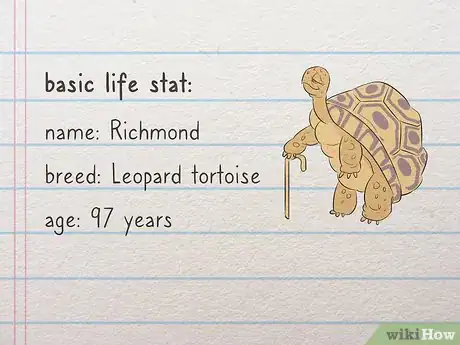 basic life stat:
name: Richmond
breed: Leopard tortoise
age: 97 years
wikiHow